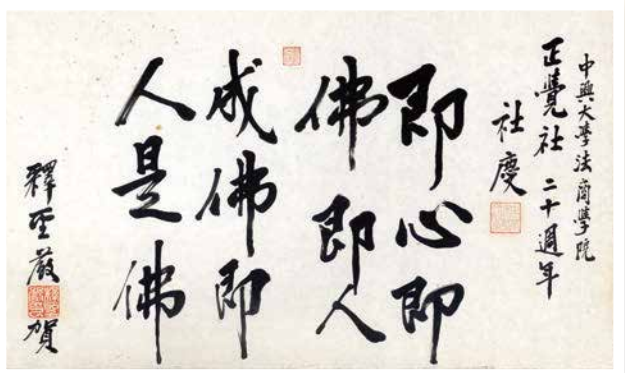 中興大學法商學院
正覺社二十週年
社慶
即心即
佛即人
成佛即
人是佛
釋聖嚴賀